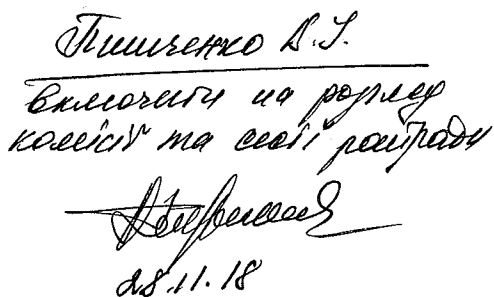 Пишченко В.І.
включити на розгляд
комісії та сесії райради
28.11.18